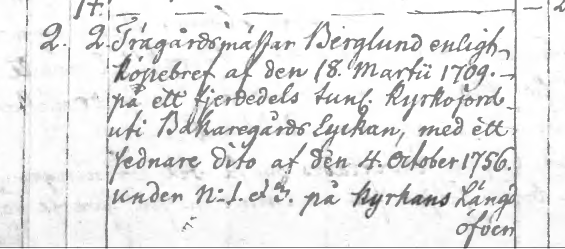 14.
2. 2. Trägårdsmästar Berglund enligh
köpebref af den 18. Martii 1709.
på ett fjerdedels tunl. Kyrkojord
uti Bakaregårds Lyckan, med ett
sednare dito af den 4. October 1756.
under No 1. et 3. på Kyrkans Längd
öfver